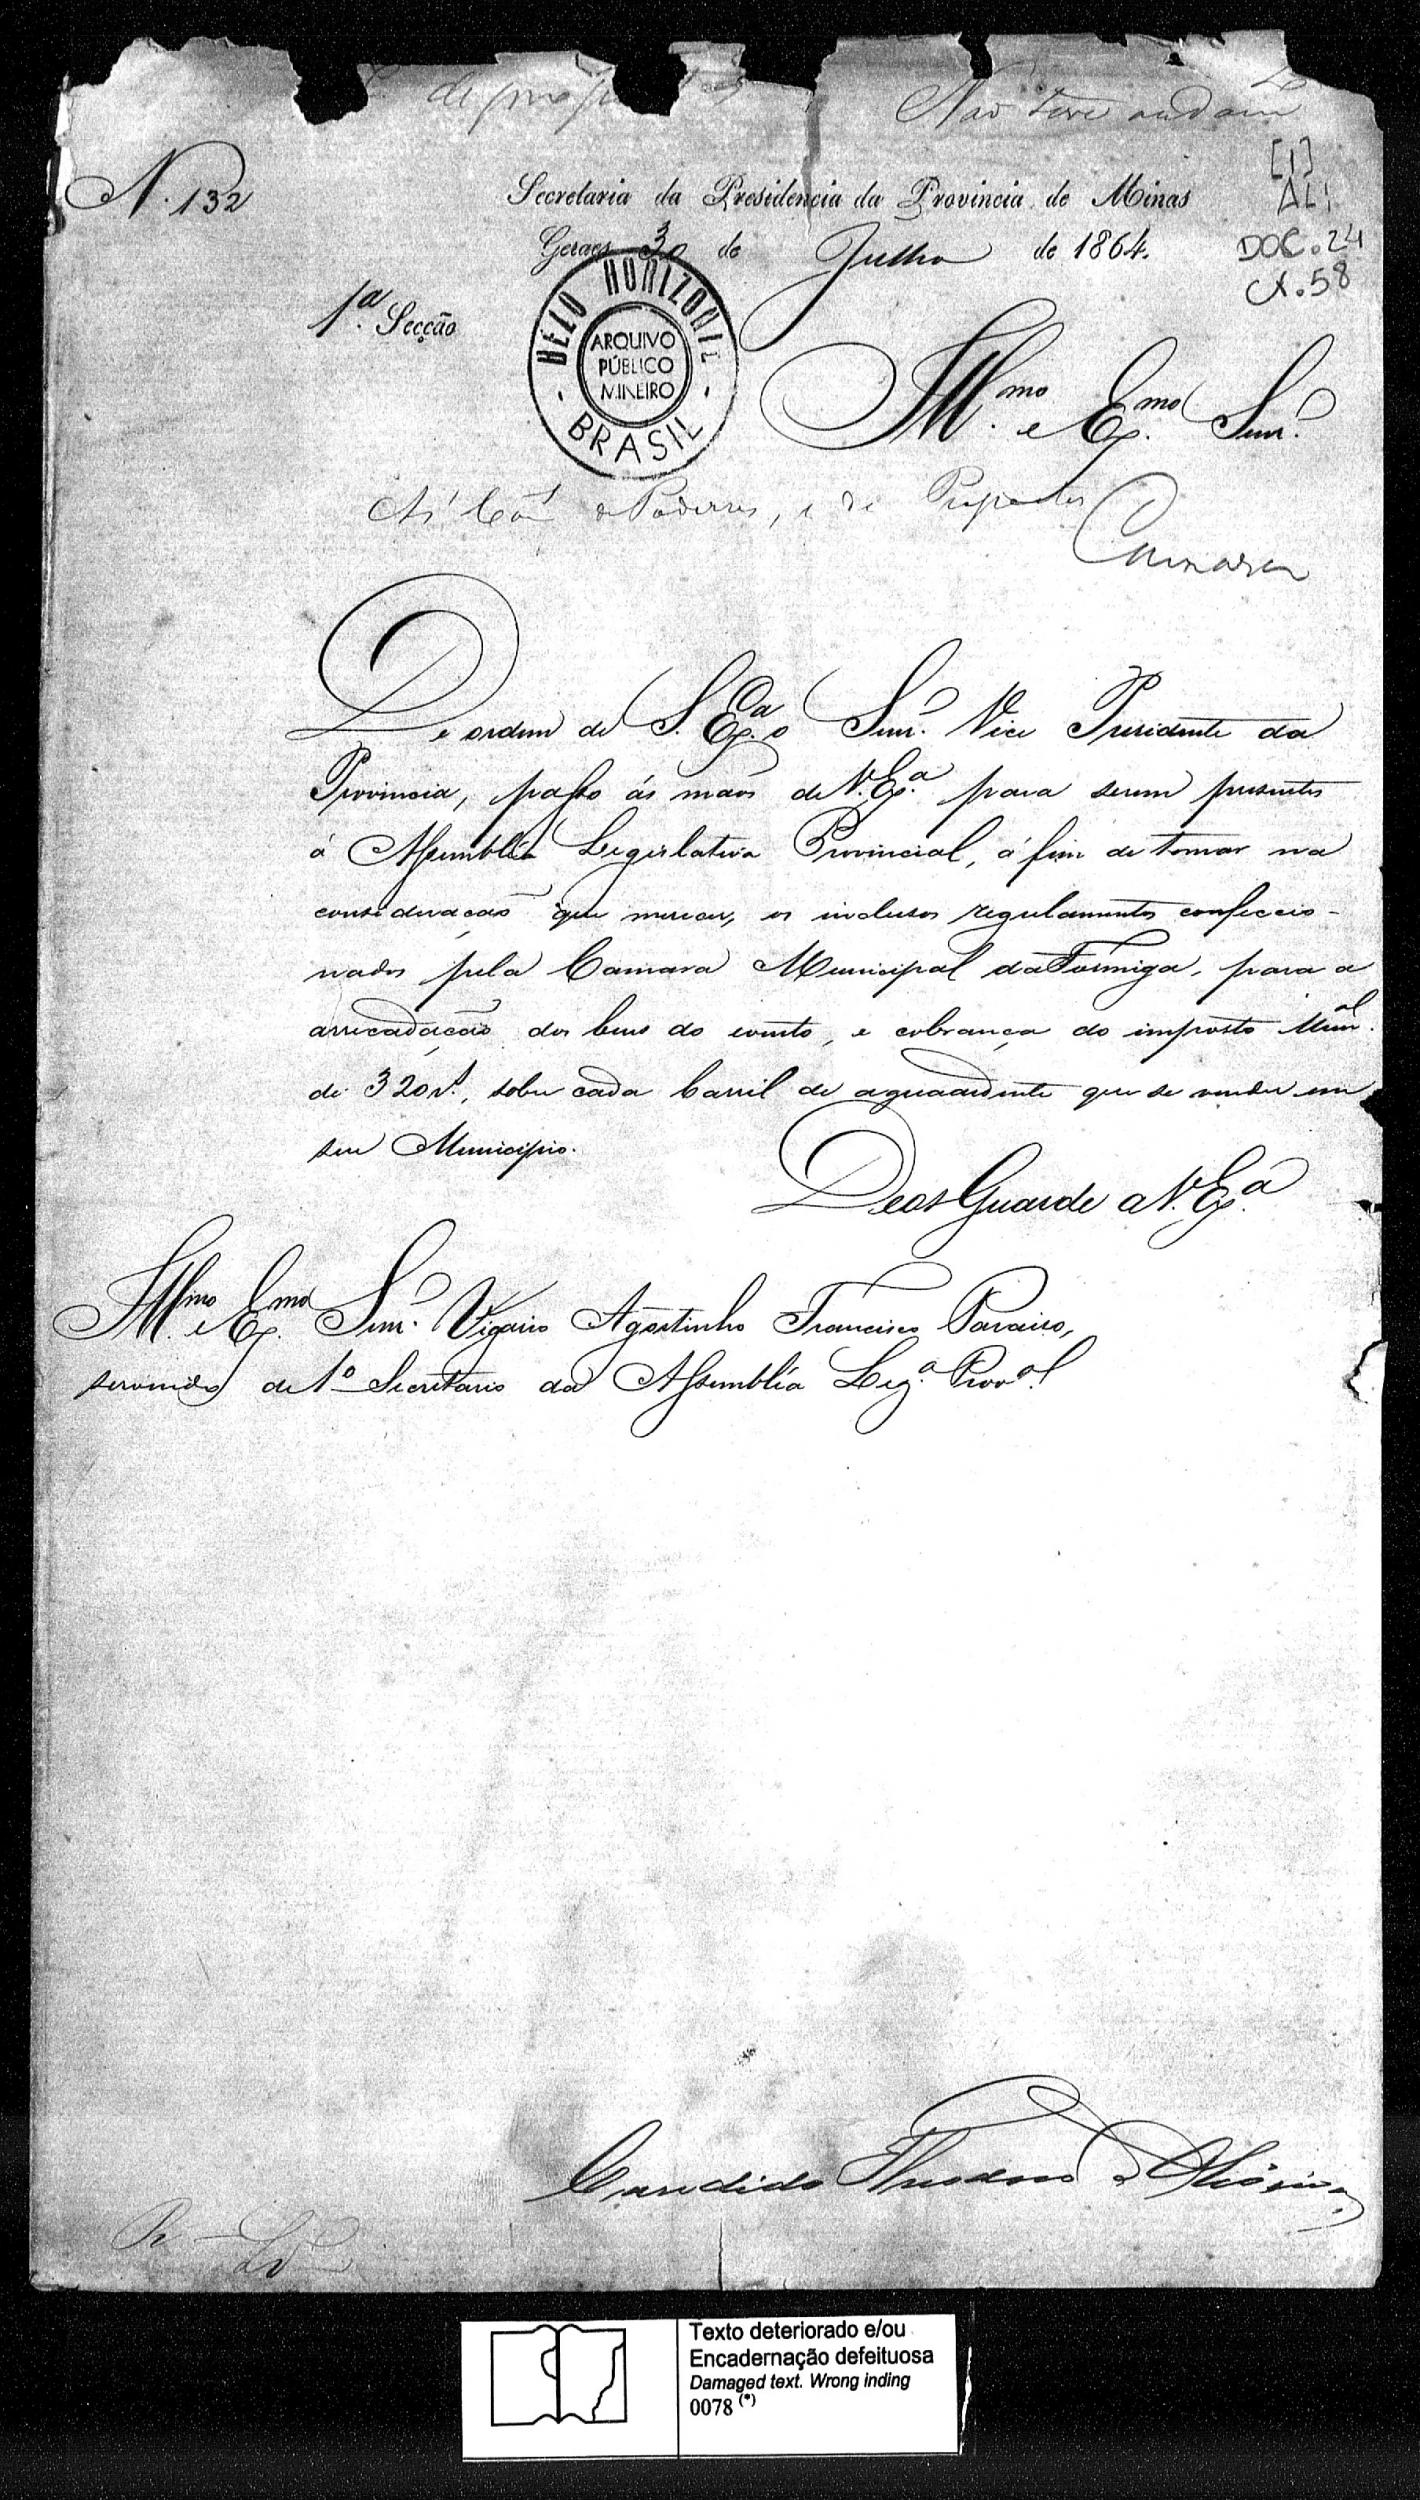 de
Não teve andam
N. 132
Secretaria da Presidencia da Provincia de Minas
Geraes 30 de Julho de 1864.
[1]
AL1
DOC. 24
CX. 58
1.ª Secção
BELO HORIZONTE
ARQUIVO
PÚBLICO
MINEIRO
BRASIL
Ill.mo e Ex.mo Snr.
Ás Com de Poderes, e de
De ordem de S. Ex.ª o Snr. Vice Presidente da
Provincia, passo ás mãos de V. Ex.ª para serem presentes
á Assembléa Legislativa Provincial, á fim de tomar na
consideração que merecer, os inclusos regulamentos confeccio-
nados pela Camara Municipal da Formiga, para a
arrecadação dos bens do evento, e cobrança do imposto Mun.al
de 320 r.s, sobre cada barril de aguaardente que se vender em
seu Municipio.
Deos Guarde a V. Ex.ª
Ill.mo e Ex.mo Snr. Vigario Agostinho Francisco Paraiso,
servindo de 1º Secretario da Assembléa Leg.ª Prov.al
Candido Theodoro de Oliveira
Texto deteriorado e/ou
Encadernação defeituosa
Damaged text. Wrong inding
0078 (*)